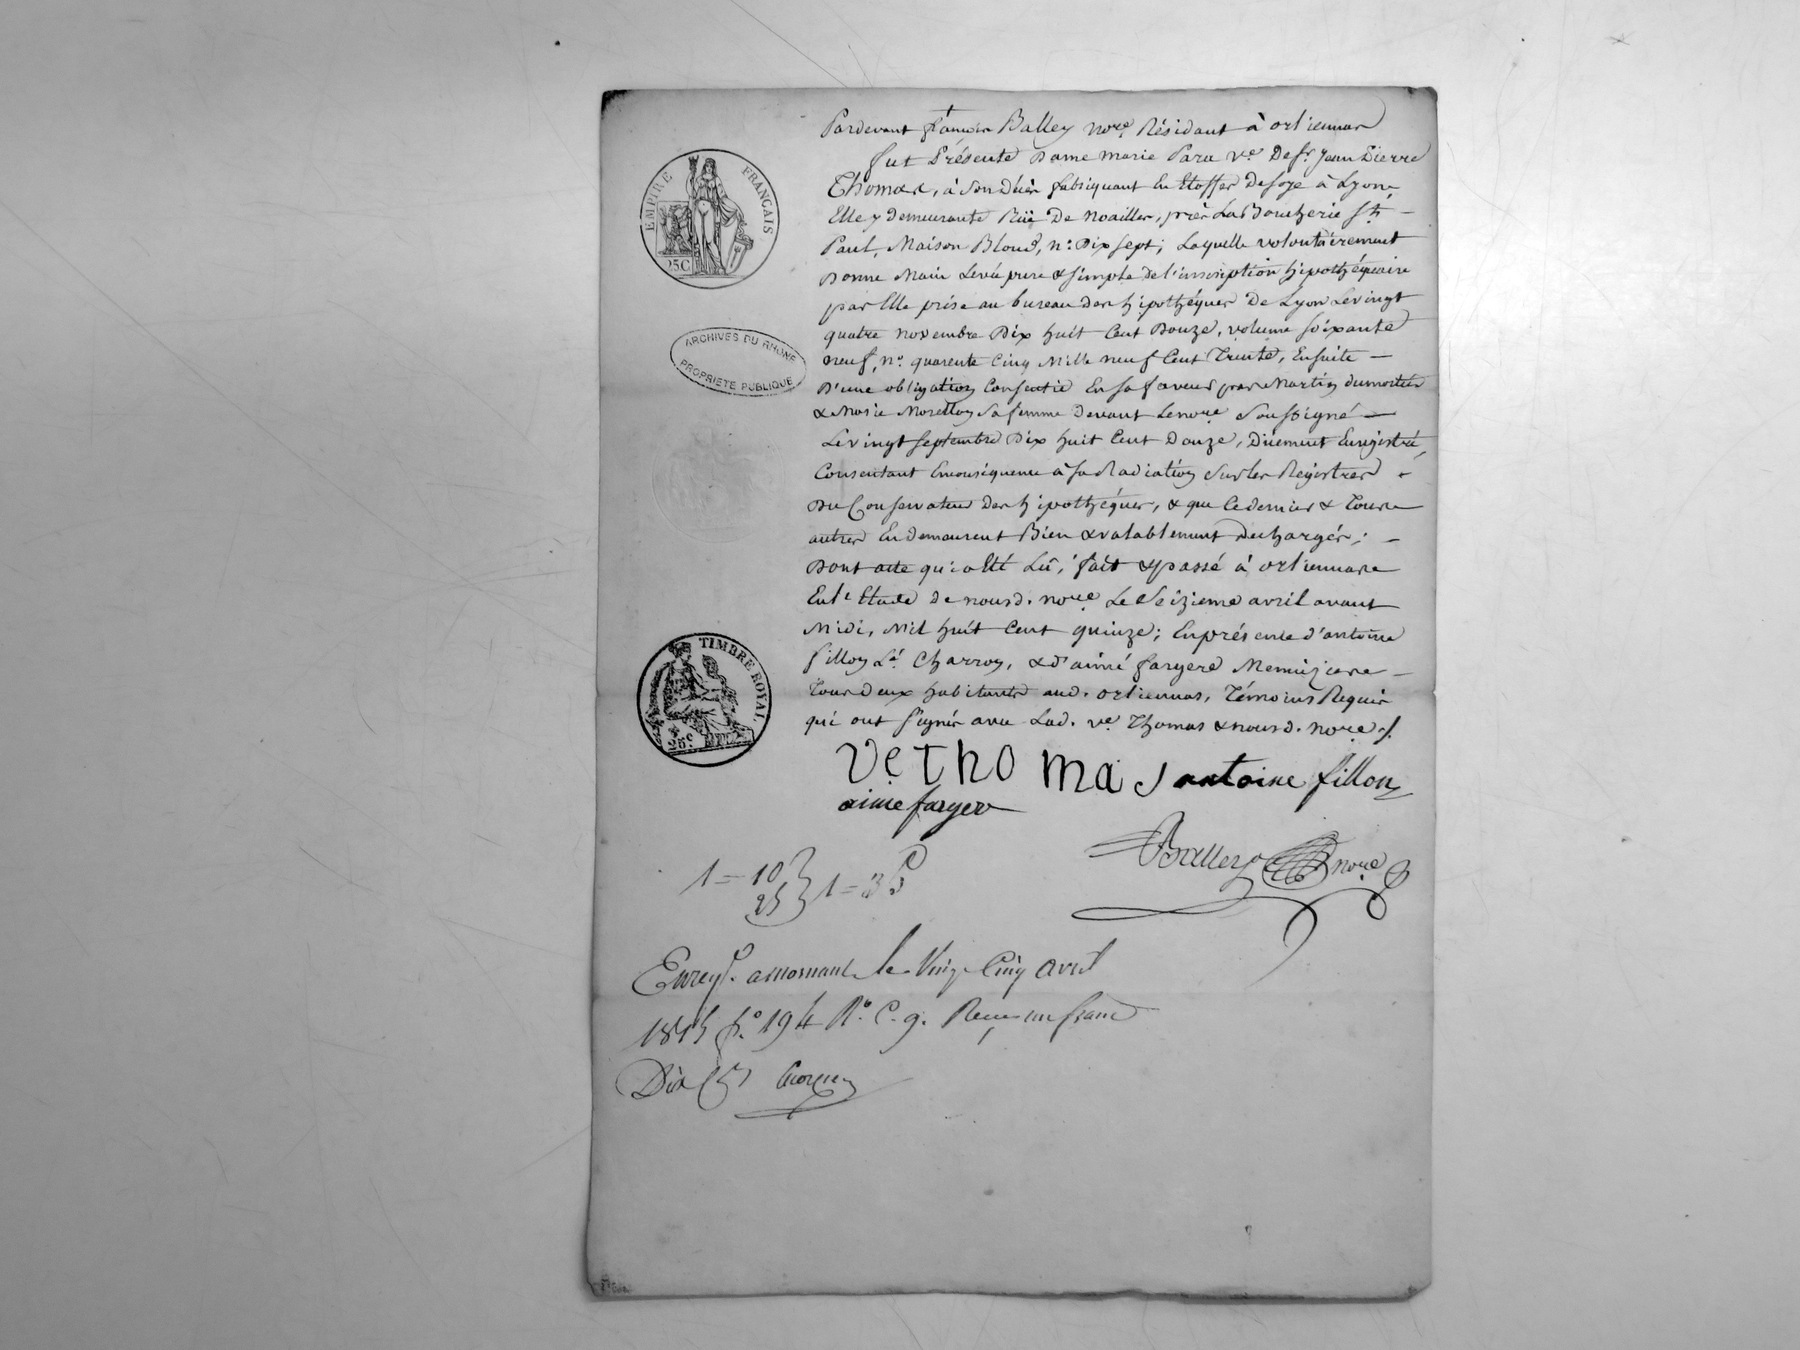 Pardevant françois Balley no.re Résidant à orliennas
fut Présente Dame marie Para v.e De s.r Jean Pierre
Thomas, à son décès fabriquant En Etoffes De soye à Lyon,
Elle y demeurante Rüe De noailles, près La Boucherie St.
Paul, Maison Bloud, n.° Dix sept; Laquelle volontairement
Donne Main Levée pure & simple de l'inscription hipothéquaire
par Elle prise au bureau des hipothéques De Lyon Le vingt
quatre novembre Dix huit Cent Douze, volume soixante
neuf, n.° quarente Cinq Mille neuf Cent Trente, Ensuite
D'une obligation Consentie En sa faveur par Martin dumortier
& Marie Morellon sa femme devant Le no.re Soussigné
Le vingt septembre Dix huit Cent Douze, Düement Enregistré,
Consentant Enconséquence à sa Radiation Sur les Régistres
Du Conservateur Des hipothéques, & que Ce dernier & Tous
autres En demeurent Bien & valablement Déchargés;
Dont acte qui a Eté Lû, fait & passé à orliennas
En l'Etude de nousd. no.re Le Seizieme avril avant
Midi, Mil huit Cent quinze; En présence d'antoine
fillon L.é Charron, & d'aimé fargere Menuizier
Tous deux habitants aud. orliennas, Témoins Requis
qui ont signés avec Lad. v.e Thomas & nousd. no.re ./.
ve Thomas antoine fillon
aime farger
Balley no.re
1 = 10 } 1 = 35
25
Enreg.é a mornant le Vingt Cinq avril
1815 f.° 194 R.° C. 9. Reçu un franc
Dix C.s
EMPIRE FRANÇAIS
25C
ARCHIVES DU RHÔNE
PROPRIÉTÉ PUBLIQUE
TIMBRE ROYAL
25c